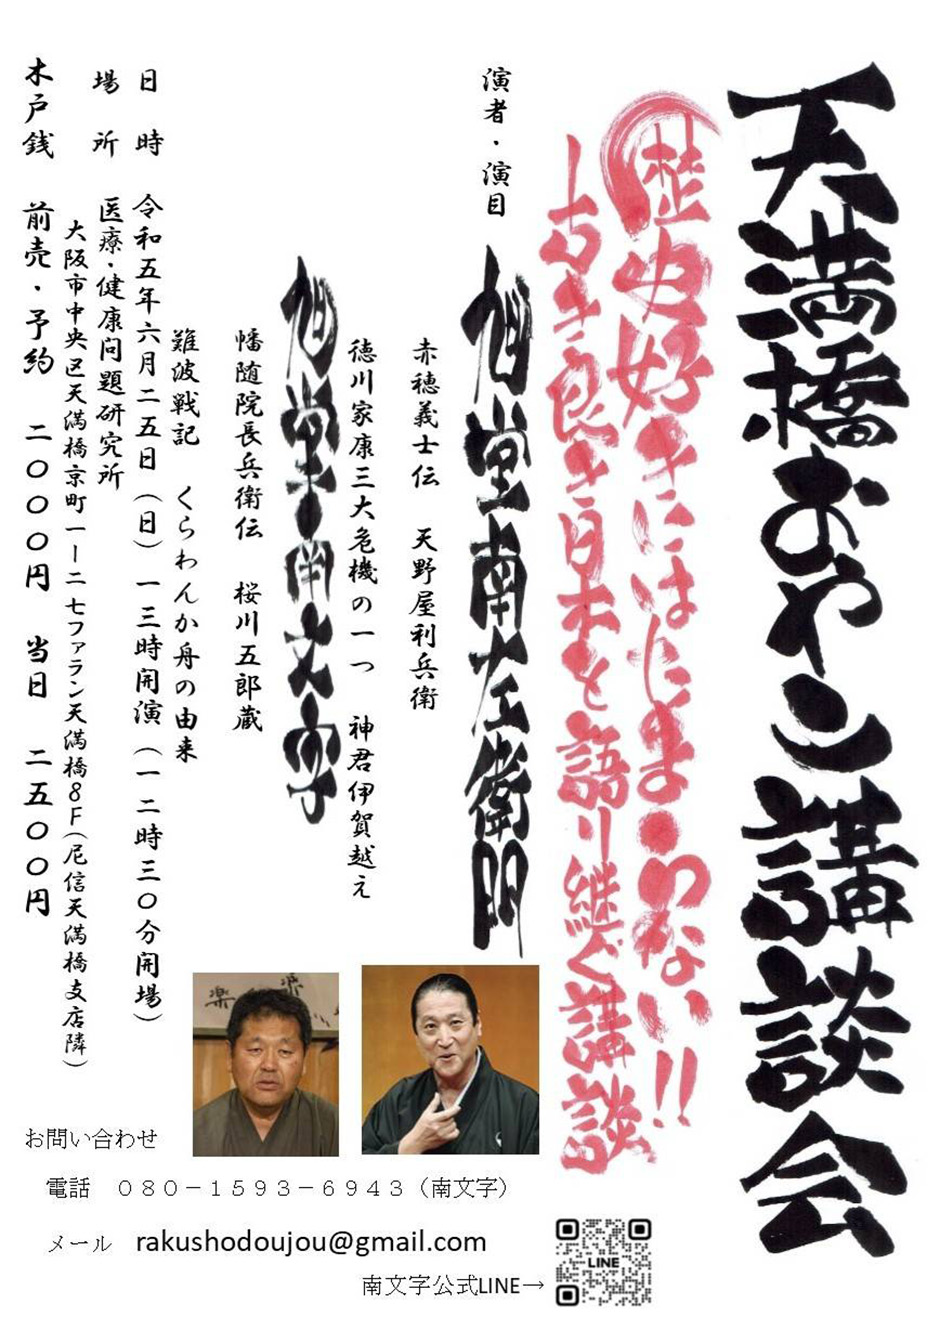 天満橋おやつ講談会
歴史好きにはたまらない!!
古き良き日本を語り継ぐ講談
演者・演目
旭堂南左衛門
赤穂義士伝　天野屋利兵衛
徳川家康三大危機の一つ　神君伊賀越え
旭堂南文字
幡随院長兵衛伝　桜川五郎蔵
難波戦記　くらわんか舟の由来
日時　令和五年六月二五日（日）一三時開演（一二時三〇分開場）
場所　医療・健康問題研究所
大阪市中央区天満橋京町一ー二七ファラン天満橋８Ｆ（尼信天満橋支店隣）
木戸銭　前売・予約　二〇〇〇円　当日　二五〇〇円
お問い合わせ
電話　０８０－１５９３－６９４３（南文字）
メール　rakushodoujou@gmail.com
南文字公式LINE→
LINE